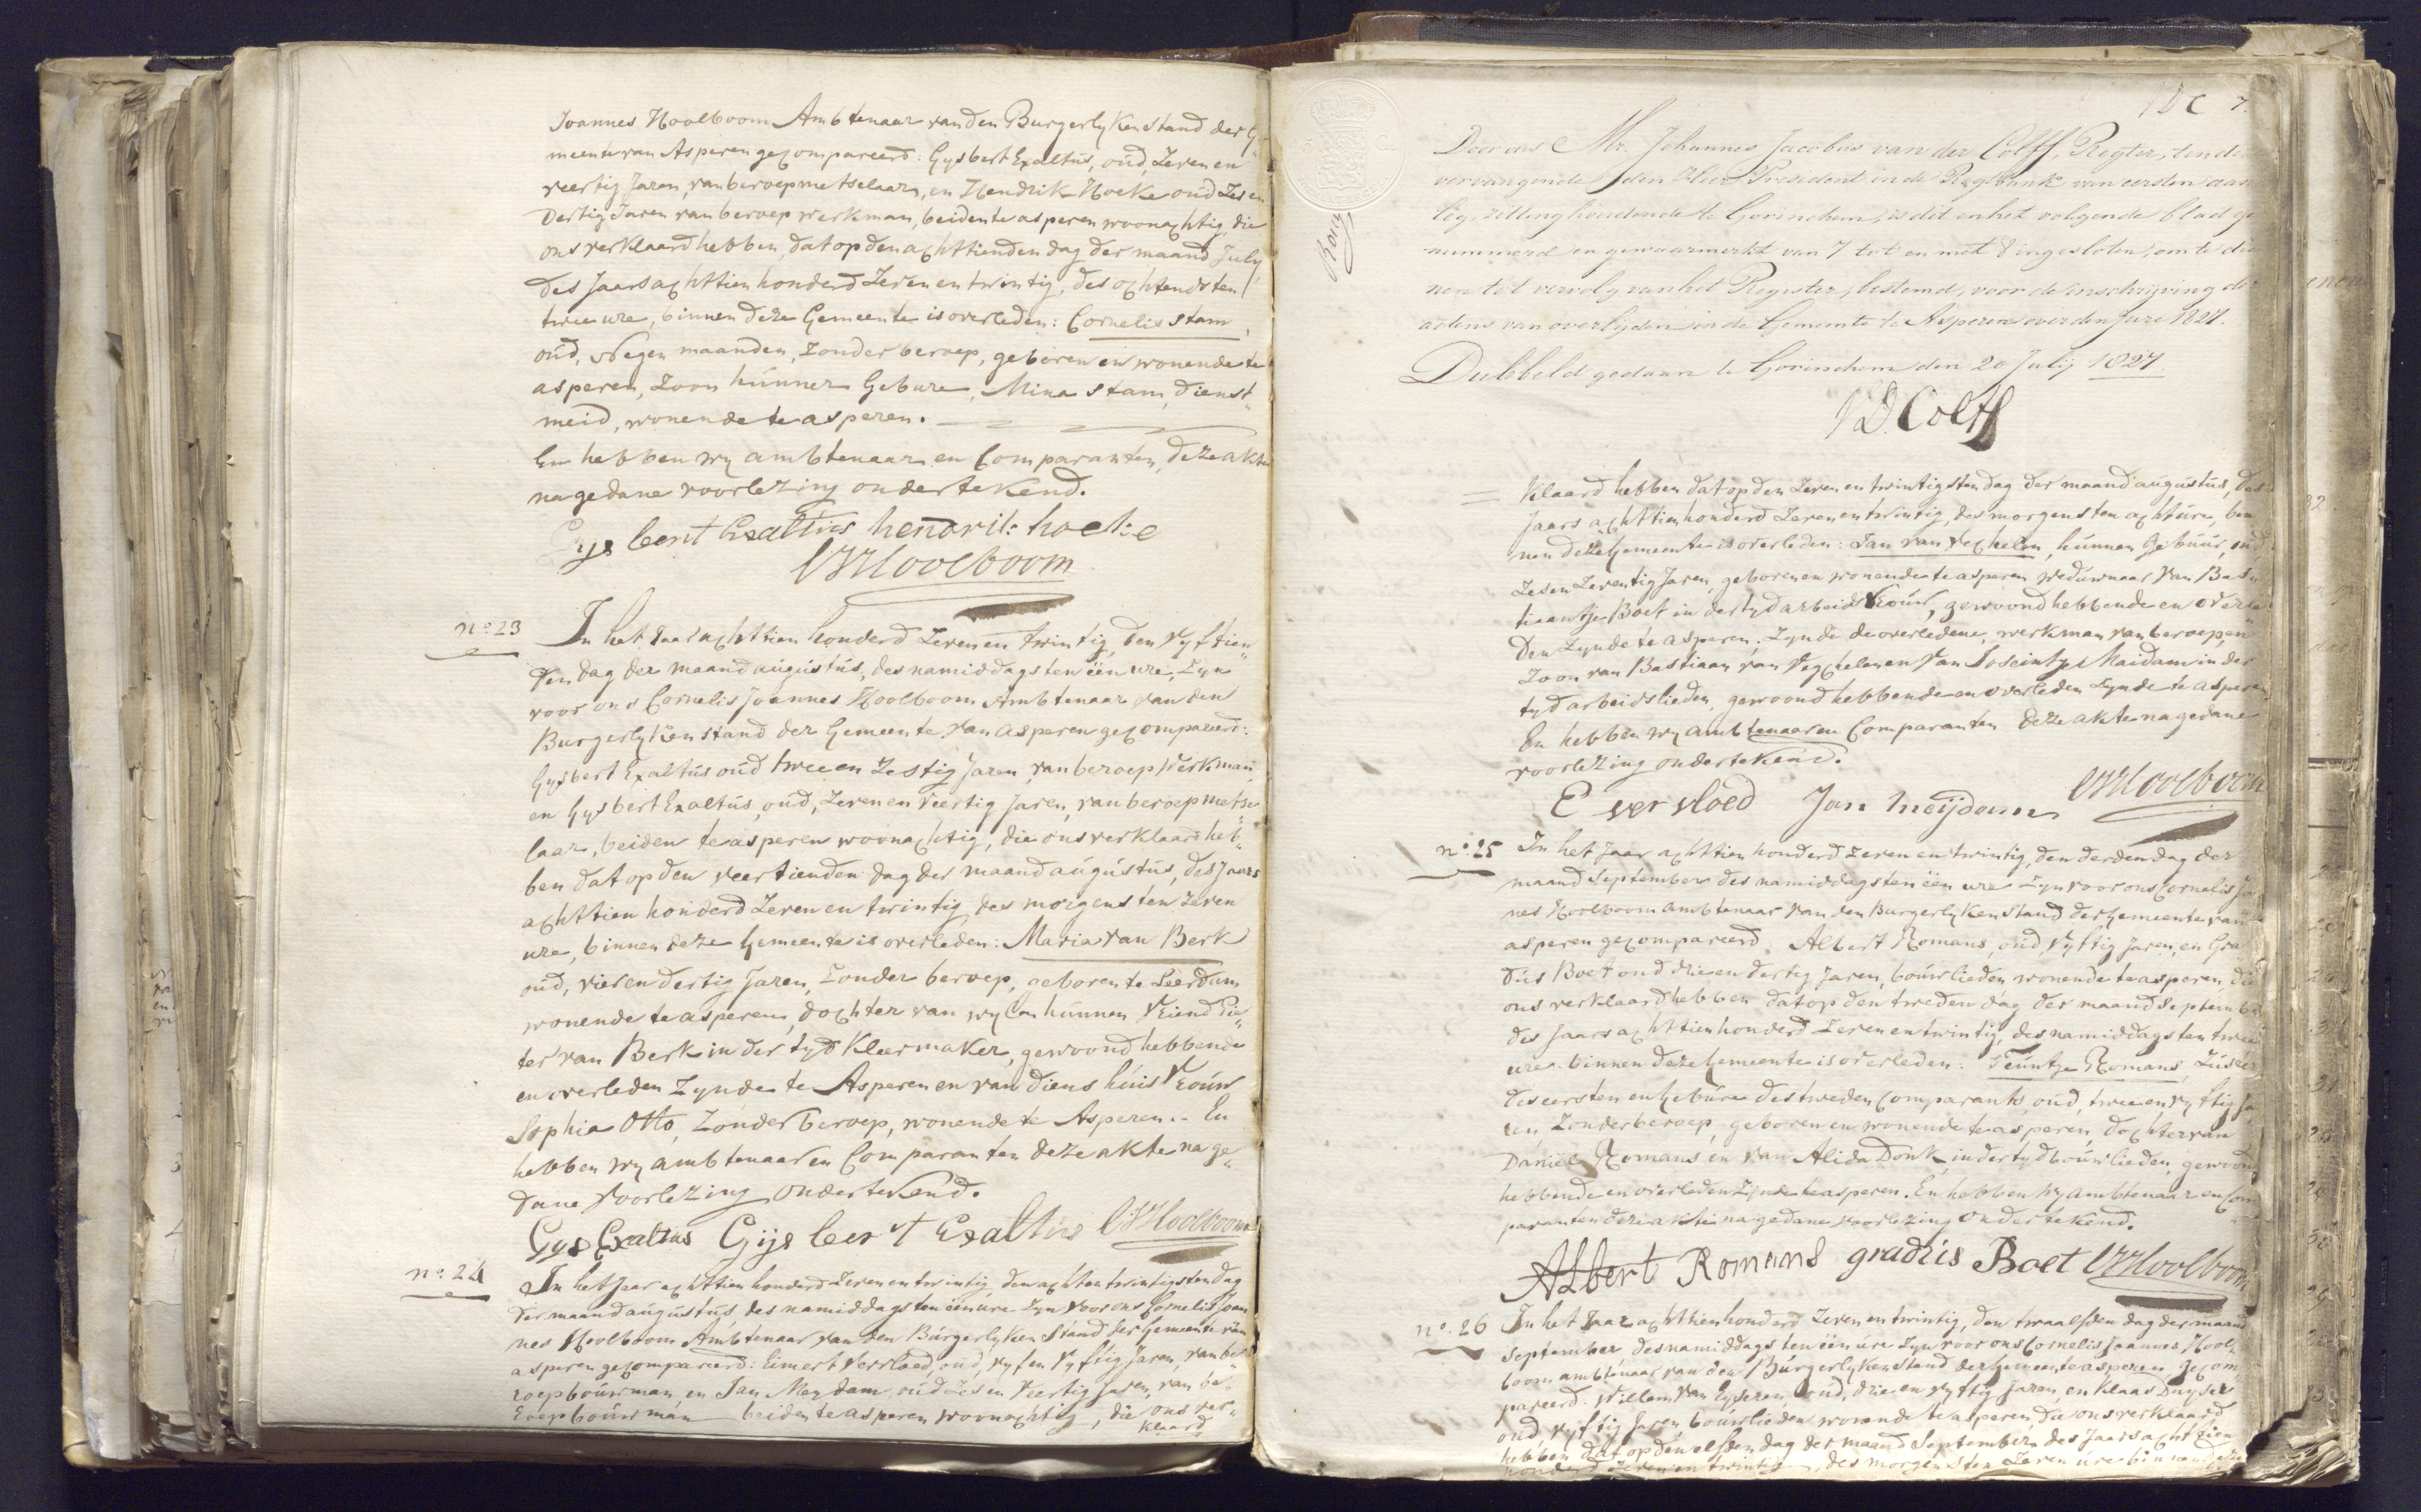 Joannes Hoolboom Ambtenaar van den Burgerlyken stand der Ge
meente van Asperen gecompareerd: Gysbert Exaltus, oud, Zeven en
veertig Jaren, van beroep metselaar, en Hendrik Hoeke oud Zes en
dertig Jaren van beroep werkman, beiden te asperen woonachtig, die
ons verklaard hebben, dat op den achttienden dag der maand July,
des Jaars achttien honderd Zeven en twintig, des ochtends ten
twee ure, binnen deze Gemeente is overleden: Cornelis Stam,
oud, Negen maanden, Zonder beroep, geboren en wonende te
asperen, Zoon hunner Gebure, Mina Stam, dienst„
meid, wonende te asperen.
En hebben wy ambtenaar en Comparanten, deze akte
na gedane voorlezing ondertekend.
Gys bert Exaltus hendrik hoeke
CJHoolboom
no. 23
In het Jaar achttien honderd Zeven en twintig, den vyftien„
den dag der maand augustus, des namiddags ten één ure, Zyn
voor ons Cornelis Joannes Hoolboom Ambtenaar van den
Burgerlyken stand der Gemeente van asperen gecompareerd:
Gysbert Exaltus oud twee en Zestig Jaren, van beroep Werkman
en Gysbert Exaltus, oud, Zeven en veertig Jaren, van beroep metse„
laar, beiden te asperen woonachtig, die ons verklaard heb„
ben dat op den veertienden dag der maand augustus, des Jaars
achttien honderd Zeven en twintig des morgens ten Zeven
ure, binnen deze Gemeente is overleden: Maria van Berk
oud, vier en dertig Jaren, Zonder beroep, geboren te Leerdam
wonende te asperen, dochter van wylen hunnen Vriend Pie„
ter van Berk in der tyd Kleermaker, gewoond hebbende
en overleden Zynde te Asperen en van diens huis Vrouw
Sophia Otto, Zonder beroep, wonende te Asperen.. En
hebben wy ambtenaar en Comparanten deze akte na ge„
dane Voorlezing ondertekend.
Gys Exaltus Gijs bert Exaltus CJHoolboom
no. 24
In het Jaar achttien honderd Zeven en twintig, den achtentwintigsten dag
der maand augustus, des namiddags ten één ure Zyn voor ons Cornelis Joan
nes Hoolboom Ambtenaar van den Burgerlyken Stand der Gemeente van
asperen gecompareerd: Eimert Vervloed, oud, vyf en vyftig Jaren, van be„
roep bouwman, en Jan Mey dam, oud Zes en Veertig Jaren, van be„
roep bouwman beiden te asperen woonachtig, die ons ver„
klaard
7.
Door ons Mr. Johannes Jacobus van der Colff, Regter, ten deze
vervangende den Heer President in de Regtbank van eersten aan
leg, zitting houdende te Gorinchem, is dit en het volgende blad ge
nummerd en gewaarmerkt van 7 tot en met 8 ingesloten, om te die
nen tot vervolg van het Register, bestemd, voor de inschrijving der
actens van overlyden in de Gemeente te Asperen over den Jare 1827.
Dubbeld gedaan te Gorinchem den 20 July 1827.
VD Colff
klaard hebben dat op den Zeven en twintigsten dag der maand augustus, des
Jaars achttien honderd Zeven en twintig, des morgens ten acht ure, bin
nen deze Gemeente is overleden: Jan van Vechelen, hunnen Gebuur, oud,
Zes en Zeventig Jaren, geboren en wonende te asperen weduwnaar van Bas„
tiaantje Boet in der tyd arbeids Vrouw, gewoond hebbende en overle
den Zynde te asperen, Zynde de overledene, werkman van beroep, en
Zoon van Bastiaan van Vegchelen en Van Joseintje Maidam in der
tyd arbeidslieden, gewoond hebbende en overleden Zynde te asperen
En hebben wy ambtenaar en Comparanten deze akte na gedane
voorlezing ondertekend.
E ver vloed Jan meijdam CJHoolboom
no. 25
In het Jaar achttien honderd Zeven en twintig, den derden dag der
maand September des namiddags ten één ure Zyn voor ons Cornelis Jo
nes Hoolboom ambtenaar van den Burgerlyken Stand der Gemeente van
asperen gecompareerd Albert Romans, oud, vyftig Jaren, en Gra„
dus Boet oud drie en dertig Jaren, bouwlieden wonende te asperen, die
ons verklaard hebben dat op den tweden dag der maand Septembe
des Jaars achttien honderd Zeven en twintig, des namiddags ten twee
ure binnen deze Gemeente is overleden: Teuntje Romans, Zuster
des eersten en Gebure des tweden Comparants, oud, twee en vyftig Ja
ren, Zonder beroep, geboren en wonende te asperen, dochter van
Daniel Romans en van Alida Donk, in der tyd bouwlieden, gewoond
hebbende en overleden Zynde te asperen. En hebben wy ambtenaar en Com
paranten deze akte na gedane voorlezing ondertekend.
Albert Romans gradus Boet CJHoolboom
no. 26
In het Jaar achttien honderd Zeven en twintig, den twaalfden dag der maand
September des namiddags ten één ure Zyn voor ons Cornelis Joannes Hool„
boom ambtenaar van den Burgerlyken Stand der Gemeente asperen gecom„
pareerd. Willem van Eyseren, oud, drie en vyftig Jaren, en Klaas Duyser
oud, vyftig Jaren, bouwlieden wonende te asperen, die ons verklaard
hebben dat op den elfden dag der maand September des Jaars acht tien
honderd Zeven en twintig, des morgens ten Zeven ure binnen deze